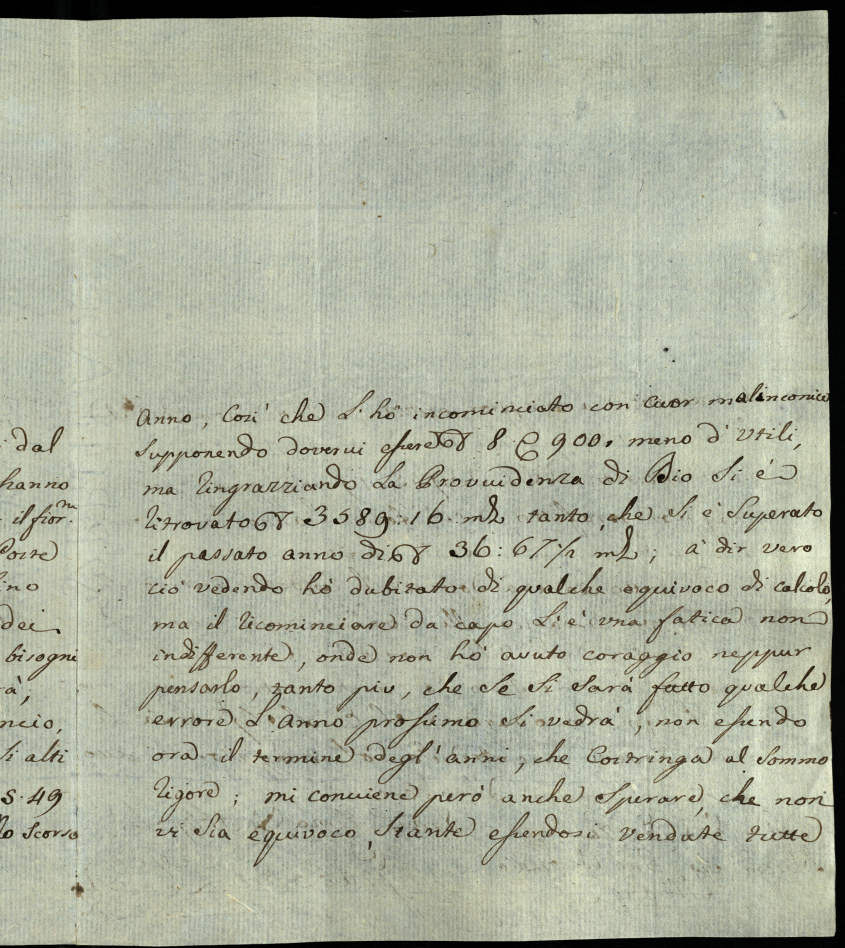 dal
hanno
il fior.ni
Corte
ino
dei
bisogni
rà;
ncio,
si alti
s. 49
lo scorso
Anno, Così che L'hò incominciato con cuor malinconico
Supponendo dovervi essere 8 900. meno d'Utili,
ma Ringrazziando La Provvidenza di Dio Si é
Ritrovato 3589:16 tanto, che Si é Superato
il passato anno di 36:67½; à dir vero
ciò vedendo hò dubitato di qualche equivoco di calcolo,
ma il Ricominciare da capo L'é una fatica non
indifferente, onde non hò avuto coraggio neppur
pensarlo, tanto piu, che Se Si Sarà fatto qualche
errore L'anno prossimo Si vedrà, non essendo
ora il termine degl'anni, che Costringa al Sommo
Rigore; mi conviene però anche Sperare, che non
vi Sia equivoco, Stante essendosi vendute tutte